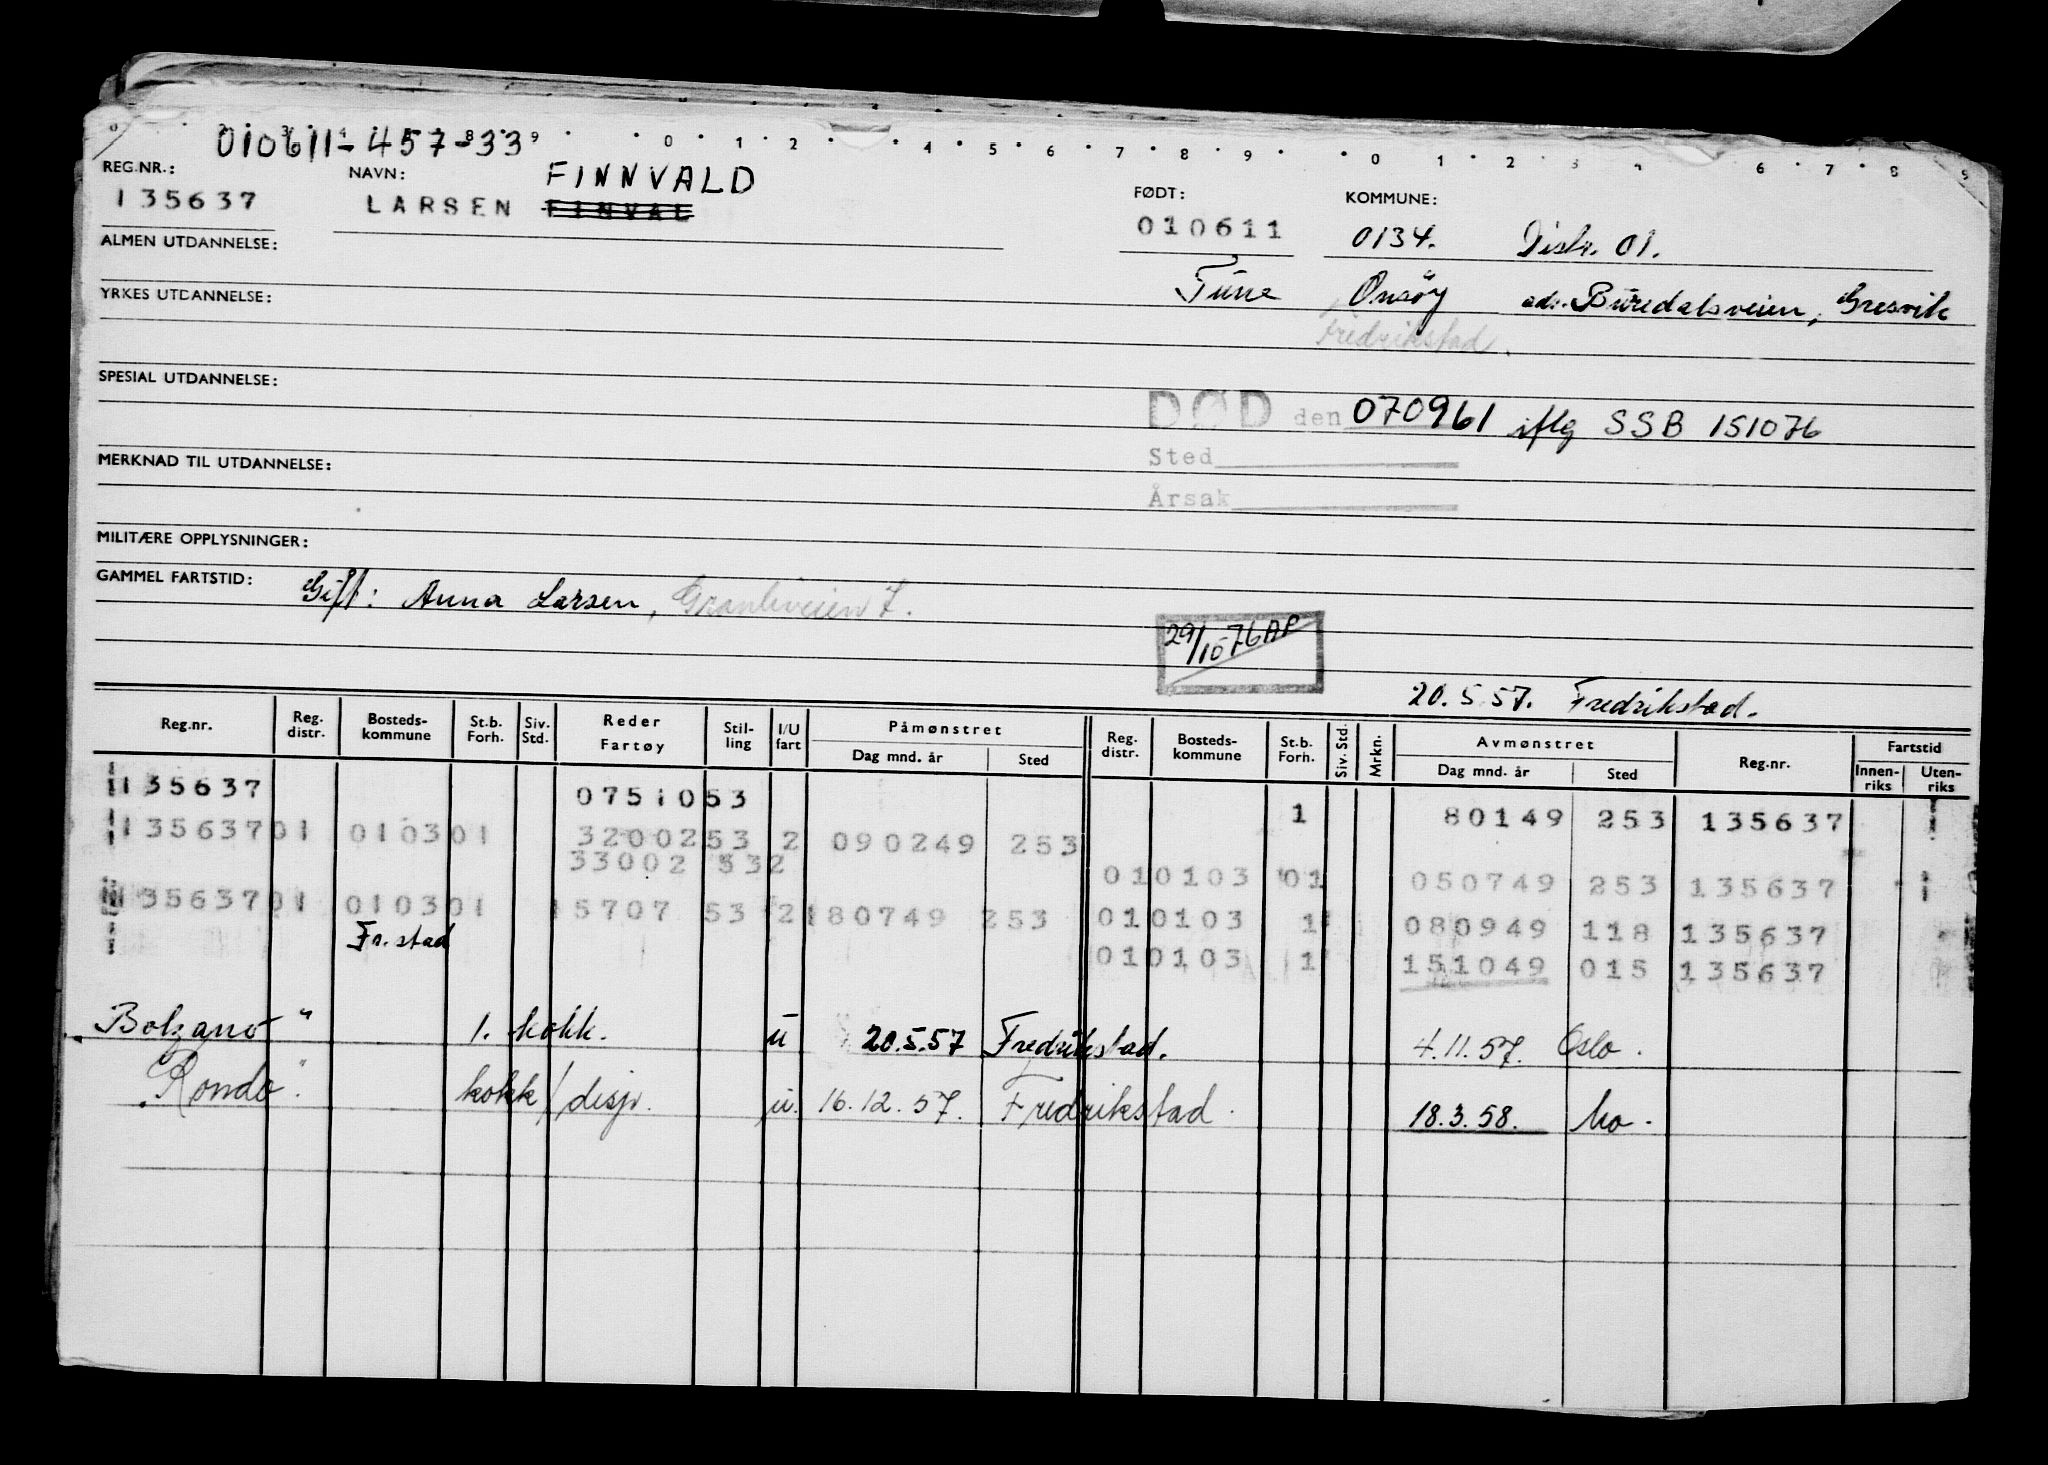 010611-457-33
REG.NR.: NAVN: FINNVALD FØDT: KOMMUNE:
135637 LARSEN FINVAL 010611 0134. Distr. 01.
ALMEN UTDANNELSE:
Tune Onsøy adr. Buredalsveien, Gresvik
YRKES UTDANNELSE:
Fredrikstad.
SPESIAL UTDANNELSE:
DØD den 070961 iflg SSB 151076
Sted
MERKNAD TIL UTDANNELSE:
Årsak
MILITÆRE OPPLYSNINGER:
GAMMEL FARTSTID: Gift: Anna Larsen, Granliveien 7.
29/10 76 AP
20.5.57. Fredrikstad.
Reg.nr. Reg. distr. Bosteds- kommune St.b. Forh. Siv. Std. Reder Fartøy Stil- ling I/U fart Påmønstret Dag mnd. år Sted Reg. distr. Bosteds- kommune St.b. Forh. Siv. Std. Mrkn. Avmønstret Dag mnd. år Sted Reg.nr. Fartstid Innen- riks Uten- riks
135637 0751053 1 80149 253 135637
135637 01 0103 01 3200253 2 090249 253
33002 532 01 0103 01 050749 253 135637
135637 01 0103 01 15707 53 2 180749 253 01 0103 1 080949 118 135637
Fr.stad 01 0103 1 151049 015 135637
Bolzano " 1. kokk. u 20.5.57 Fredrikstad. 4.11.57. Oslo.
Rondo " kokk/disp. u. 16.12.57. Fredrikstad. 18.3.58. Mo.